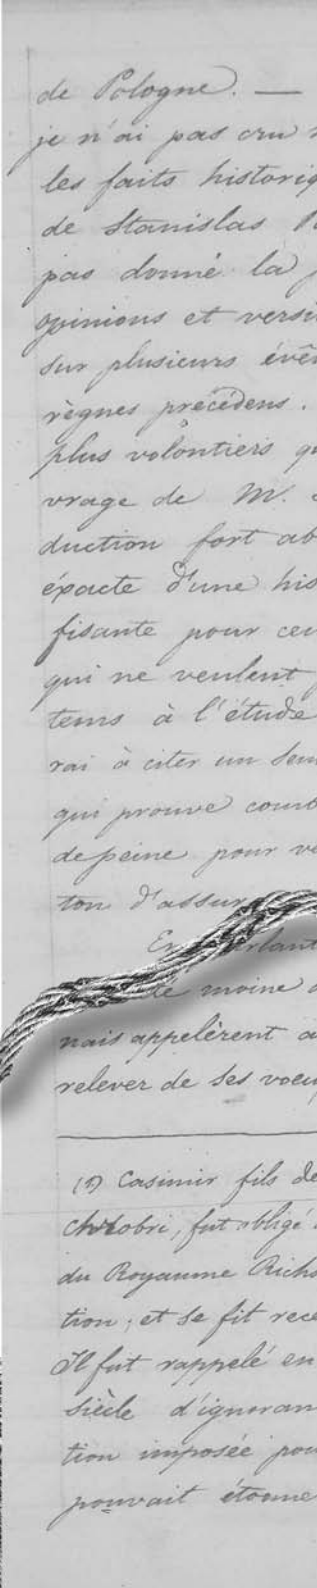 de Pologne. —
je n'ai pas cru
les faits historiq
de Stanislas
pas donné la
opinions et versi
sur plusieurs évê
règnes précédens.
plus volontiers qu
vrage de M.
duction fort ab
éxacte d'une his
fisante pour ceu
qui ne veulent
tems à l'étude
rai à citer un seu
qui prouve comb
de peine pour ve
ton d'assur
En parlant
té moine
nais appelèrent a
relever de ses voeu
(1) Casimir fils de
Chrobri, fut obligé
du Royaume Richs
tion; et se fit rece
Il fut rappelé en
siècle d'ignoran
tion imposée pou
pouvait étonne